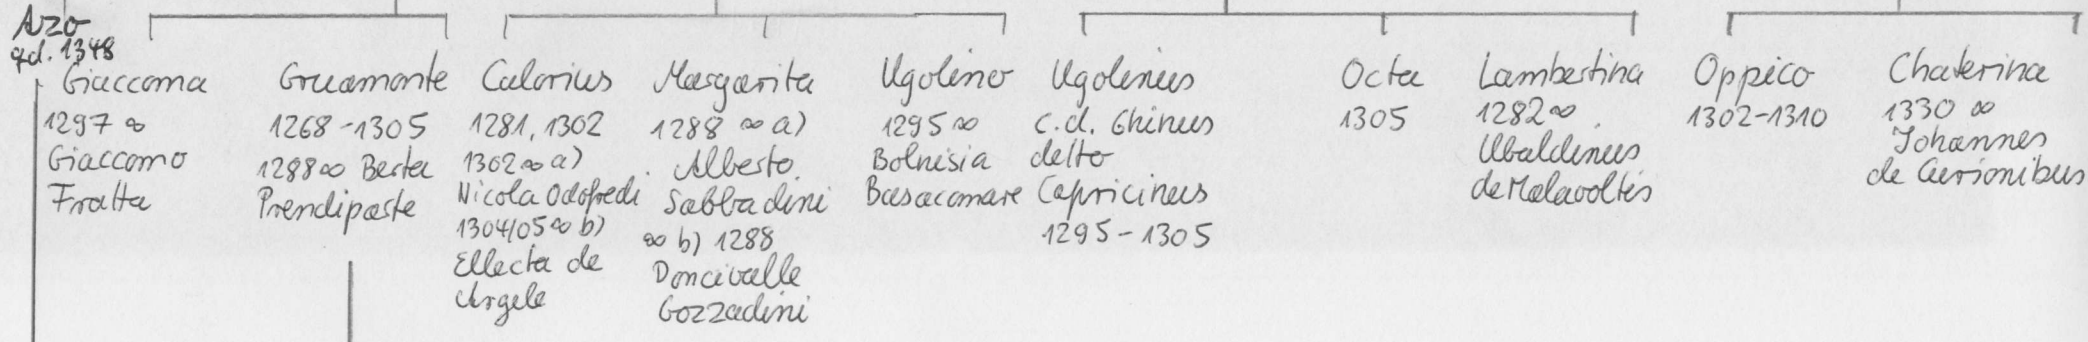 Azo
qd. 1348
Giaccoma
1297 ∞
Giaccomo
Fratta
Gruamonte
1268-1305
1288 ∞ Berta
Prendiparte
Calorius
1281, 1302
1302 ∞ a)
Nicola Odofredi
1304/05 ∞ b)
Ellecta de
Argele
Margarita
1288 ∞ a)
Alberto
Sabbadini
∞ b) 1288
Doncivalle
Gozzadini
Ugolino
1295 ∞
Bolnisia
Basacomare
Ugolinus
c.d. Ghinus
detto
Capricinus
1295-1305
Octa
1305
Lambertina
1282 ∞
Ubaldinus
de Malavoltis
Oppico
1302-1310
Chaterina
1330 ∞
Johannes
de Curionibus